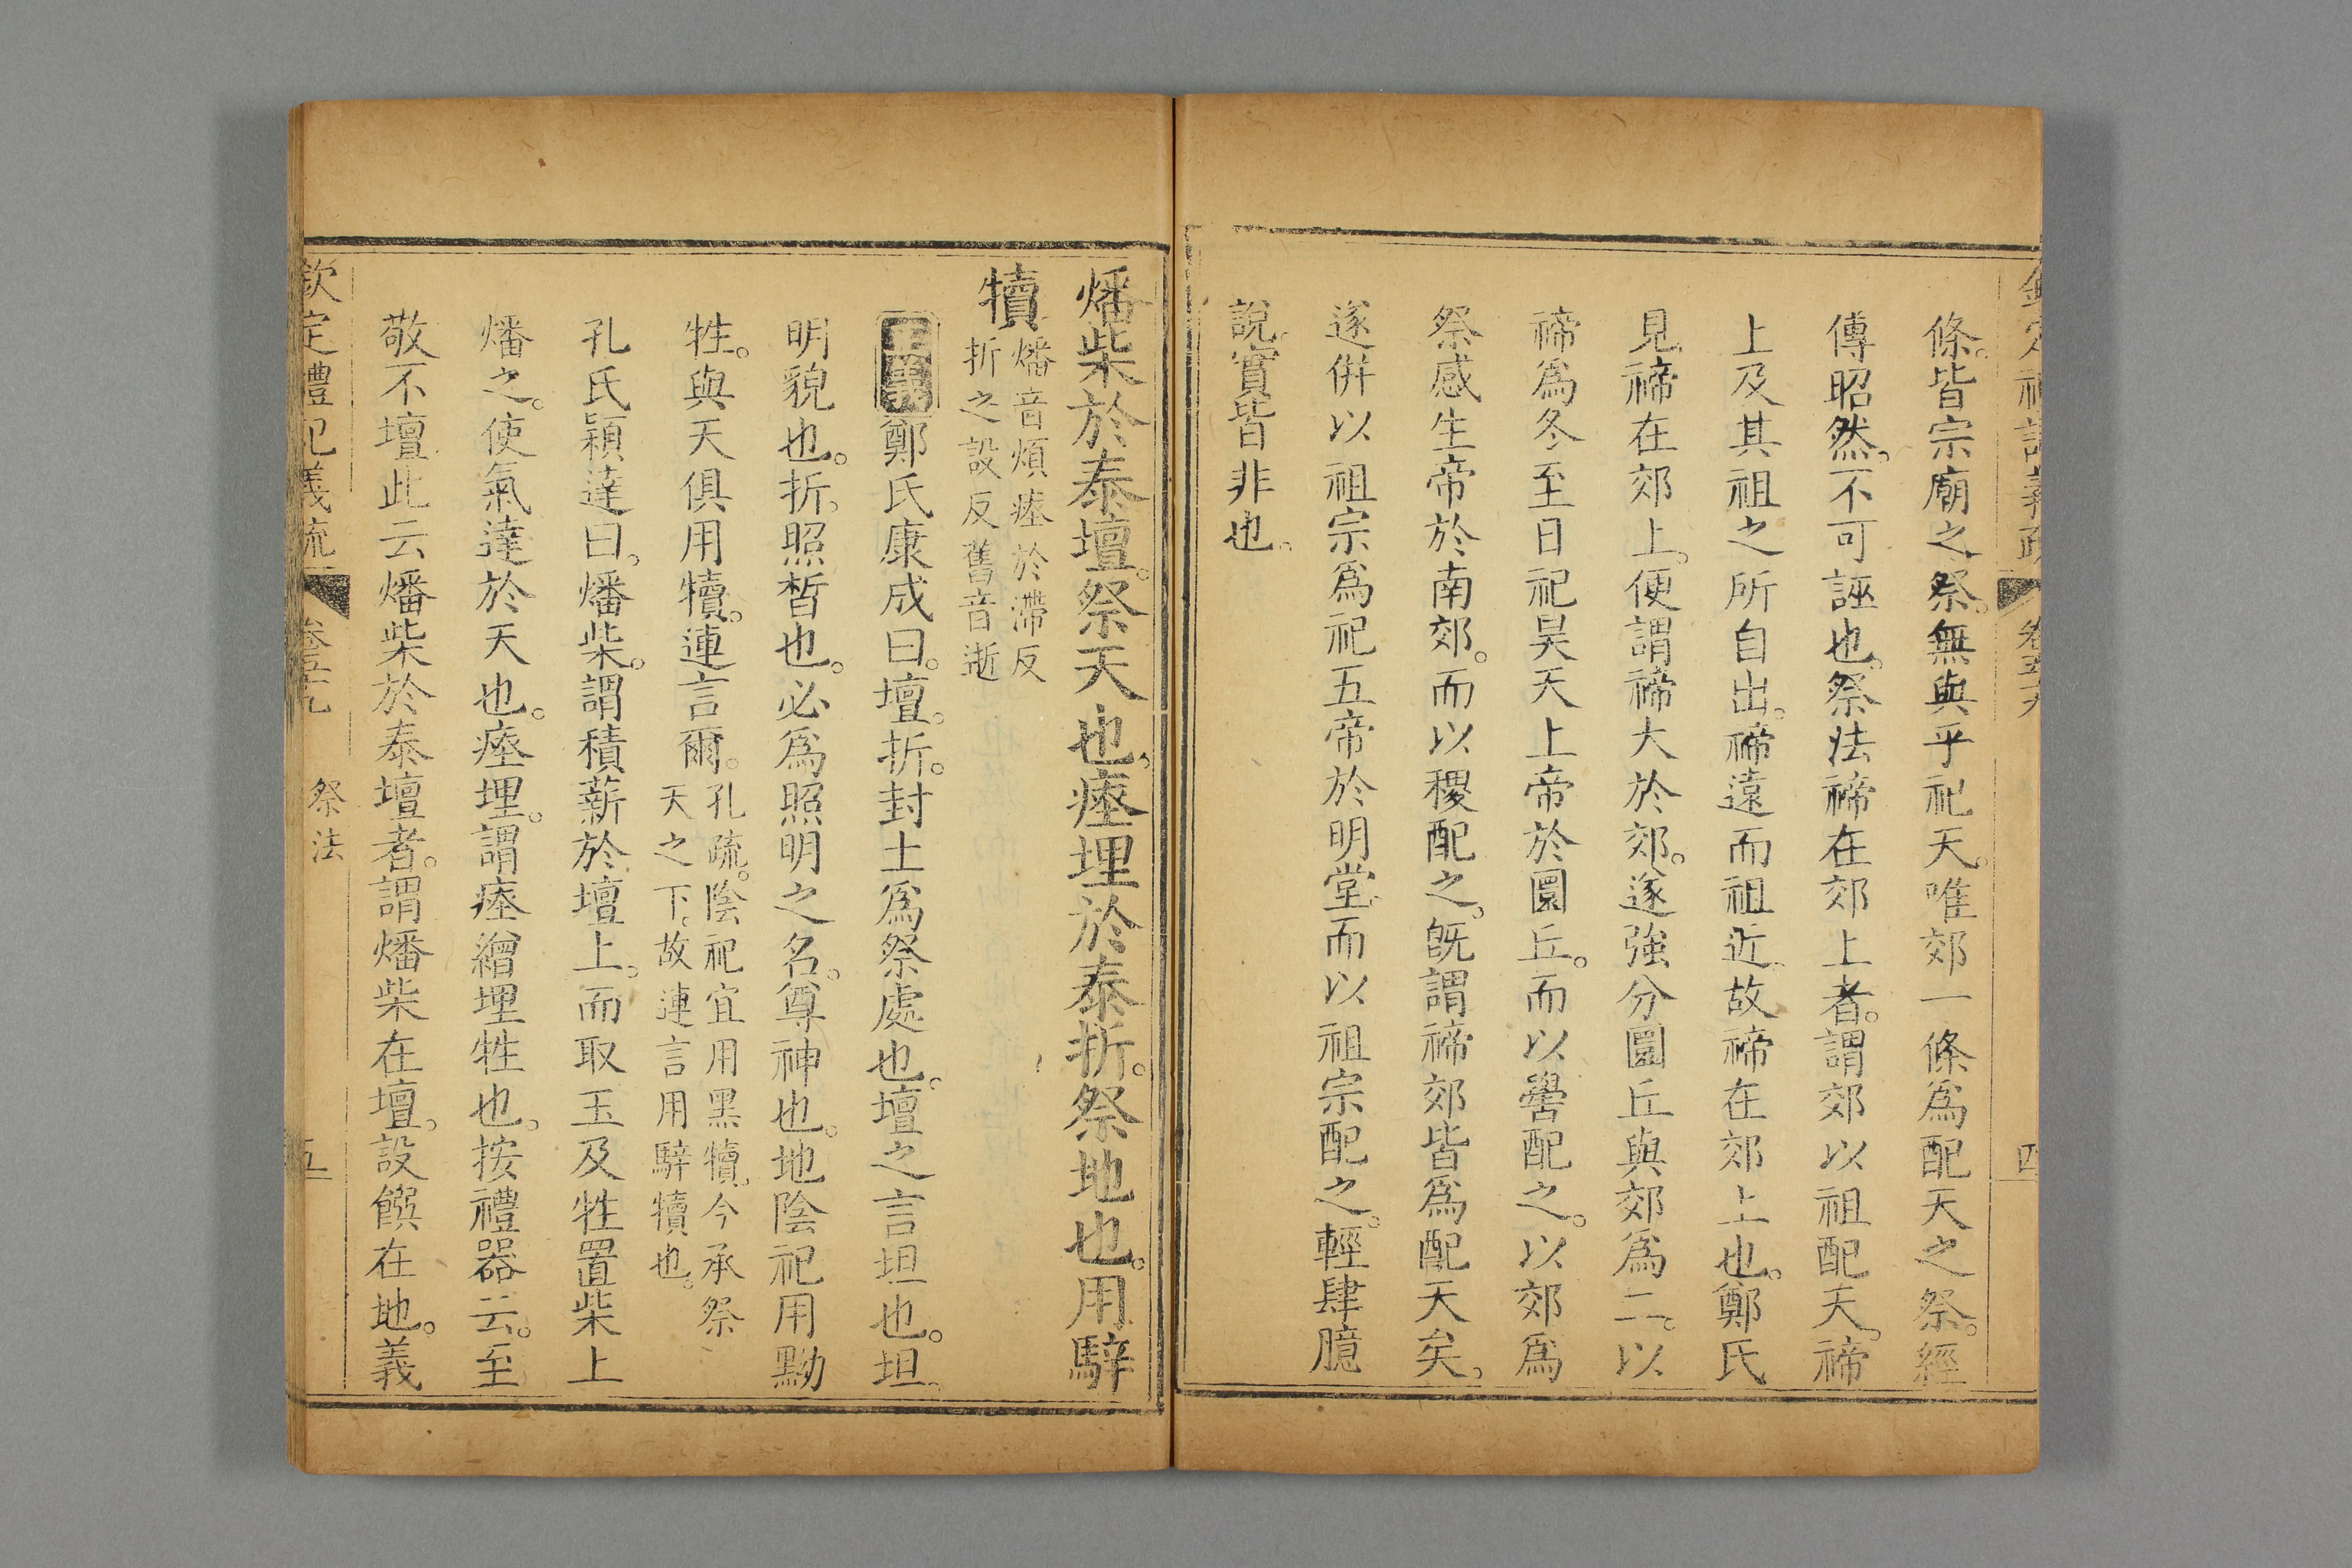 欽定禮記義疏 卷五十九 四
條。皆宗廟之祭。無與乎祀天。唯郊一條爲配天之祭。經
傳昭然。不可誣也。祭法禘在郊上者。謂郊以祖配天。禘
上及其祖之所自出。禘遠而祖近。故禘在郊上也。鄭氏
見禘在郊上。便謂禘大於郊。遂強分圜丘與郊爲二。以
禘爲冬至日祀昊天上帝於圜丘。而以嚳配之。以郊爲
祭感生帝於南郊。而以稷配之。旣謂禘郊皆爲配天矣。
遂併以祖宗爲祀五帝於明堂。而以祖宗配之。輕肆臆
說。實皆非也。
燔柴於泰壇。祭天也。瘞埋於泰折。祭地也。用騂
犢 燔音煩瘞於滯反
折之設反舊音逝
正義 鄭氏康成曰。壇。折。封土爲祭處也。壇之言坦也。坦。
明貌也。折。照晢也。必爲照明之名。尊神也。地陰祀用黝
牲。與天俱用犢。連言爾。孔疏。陰祀宜用黑犢。今承祭
天之下。故連言用騂犢也。
孔氏穎達曰。燔柴。謂積薪於壇上。而取玉及牲置柴上
燔之。使氣達於天也。瘞埋。謂瘞繒埋牲也。按禮器云。至
敬不壇此云燔柴於泰壇者。謂燔柴在壇。設饌在地。義
欽定禮記義疏 卷五十九 祭法 五